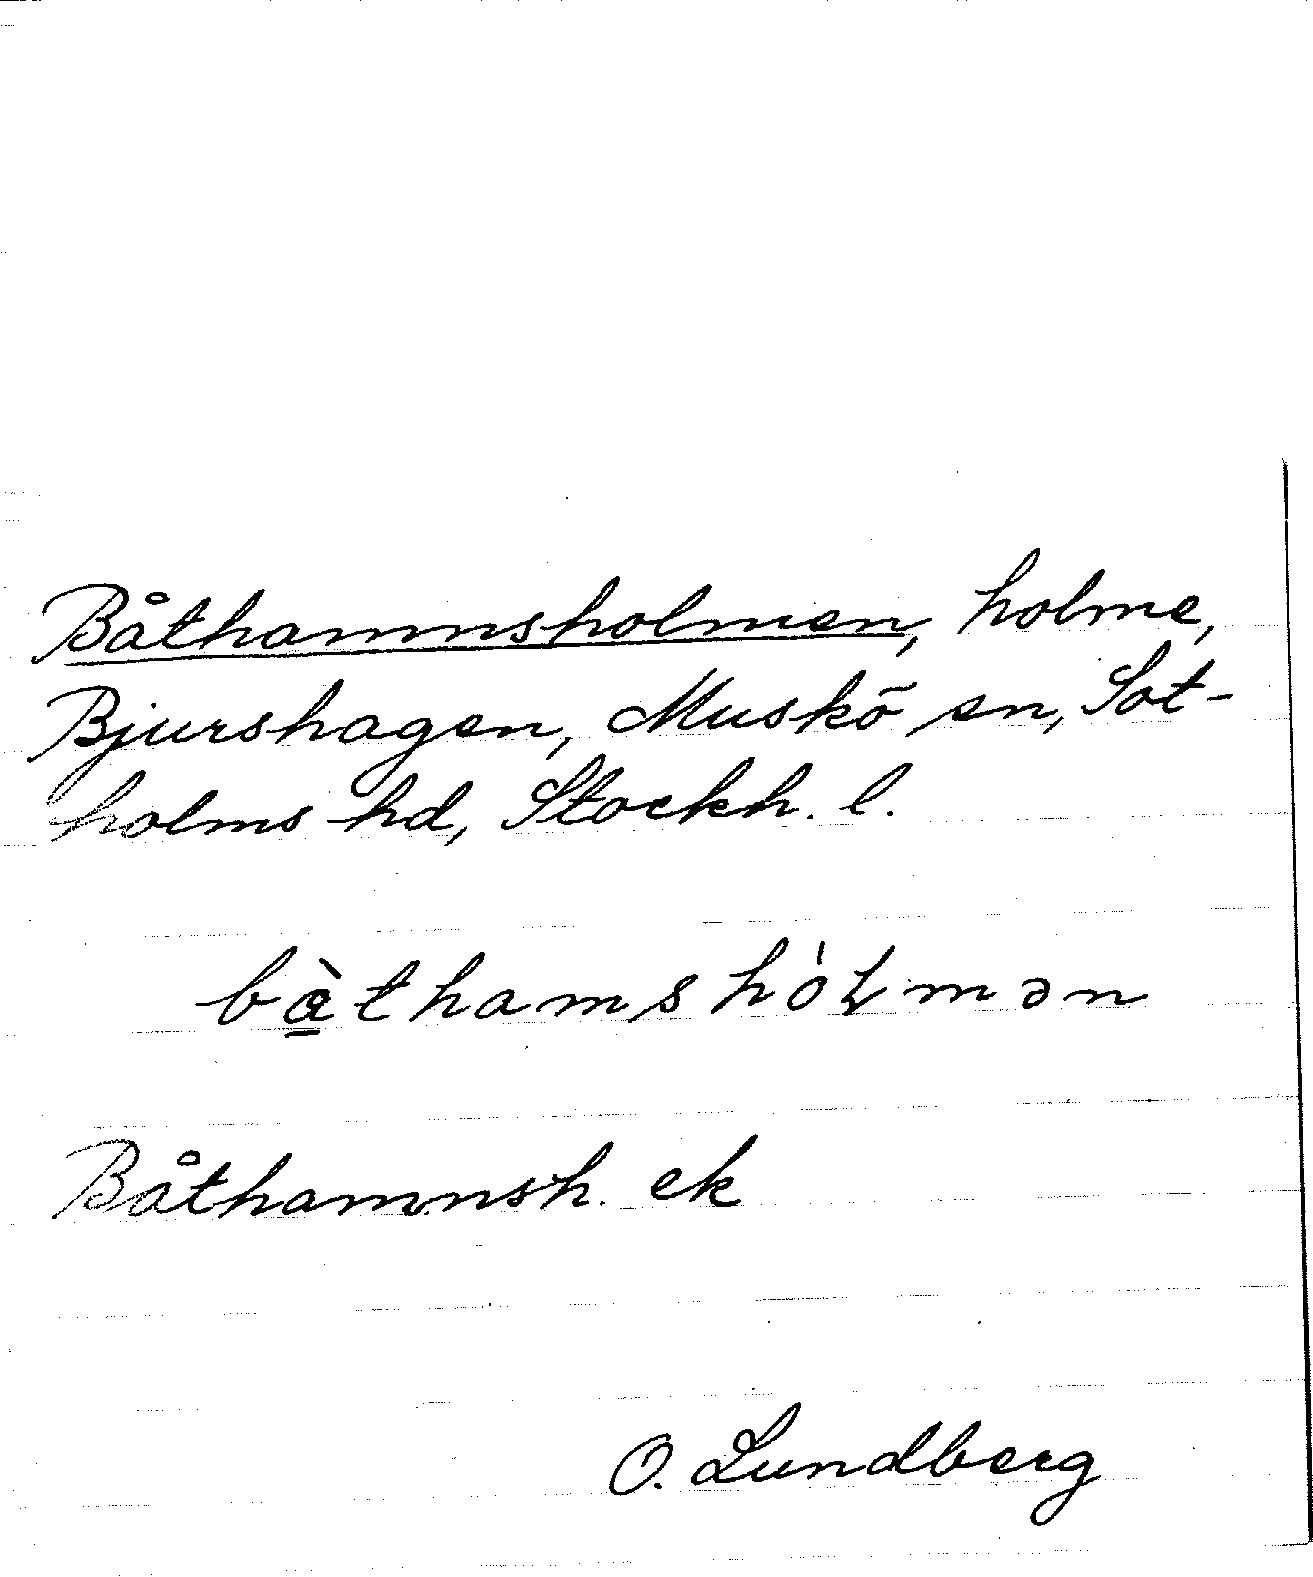 Båthamnsholmen, holme,
Bjurshagen, Muskö sn, Sot-
holms hd, Stockh. l.
bà̲thamshól̵mən
Båthamnsh. ek
O. Lundberg